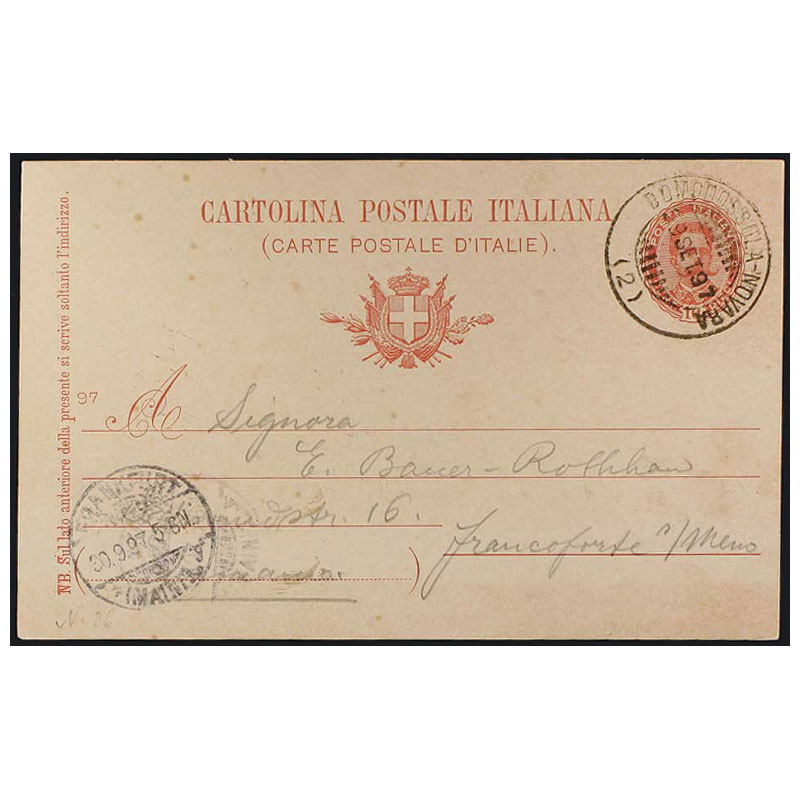 CARTOLINA POSTALE ITALIANA
(CARTE POSTALE D'ITALIE).
DOMODOSSOLA-NOVARA
SET 97
(2)
NB. Sul lato anteriore della presente si scrive soltanto l'indirizzo.
97
A Signora
E. Bauer-Rothhan
16.
Francoforte s/Meno
FRANKFURT
30.9.97. 5-6N.
(MAIN)
N. 26